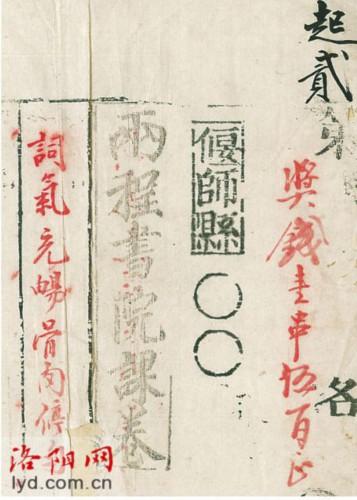 起貳
各
獎錢壹串伍百
偃師縣
○○
兩程書院課卷
詞氣充暢骨肉停
洛阳网
lyd.com.cn